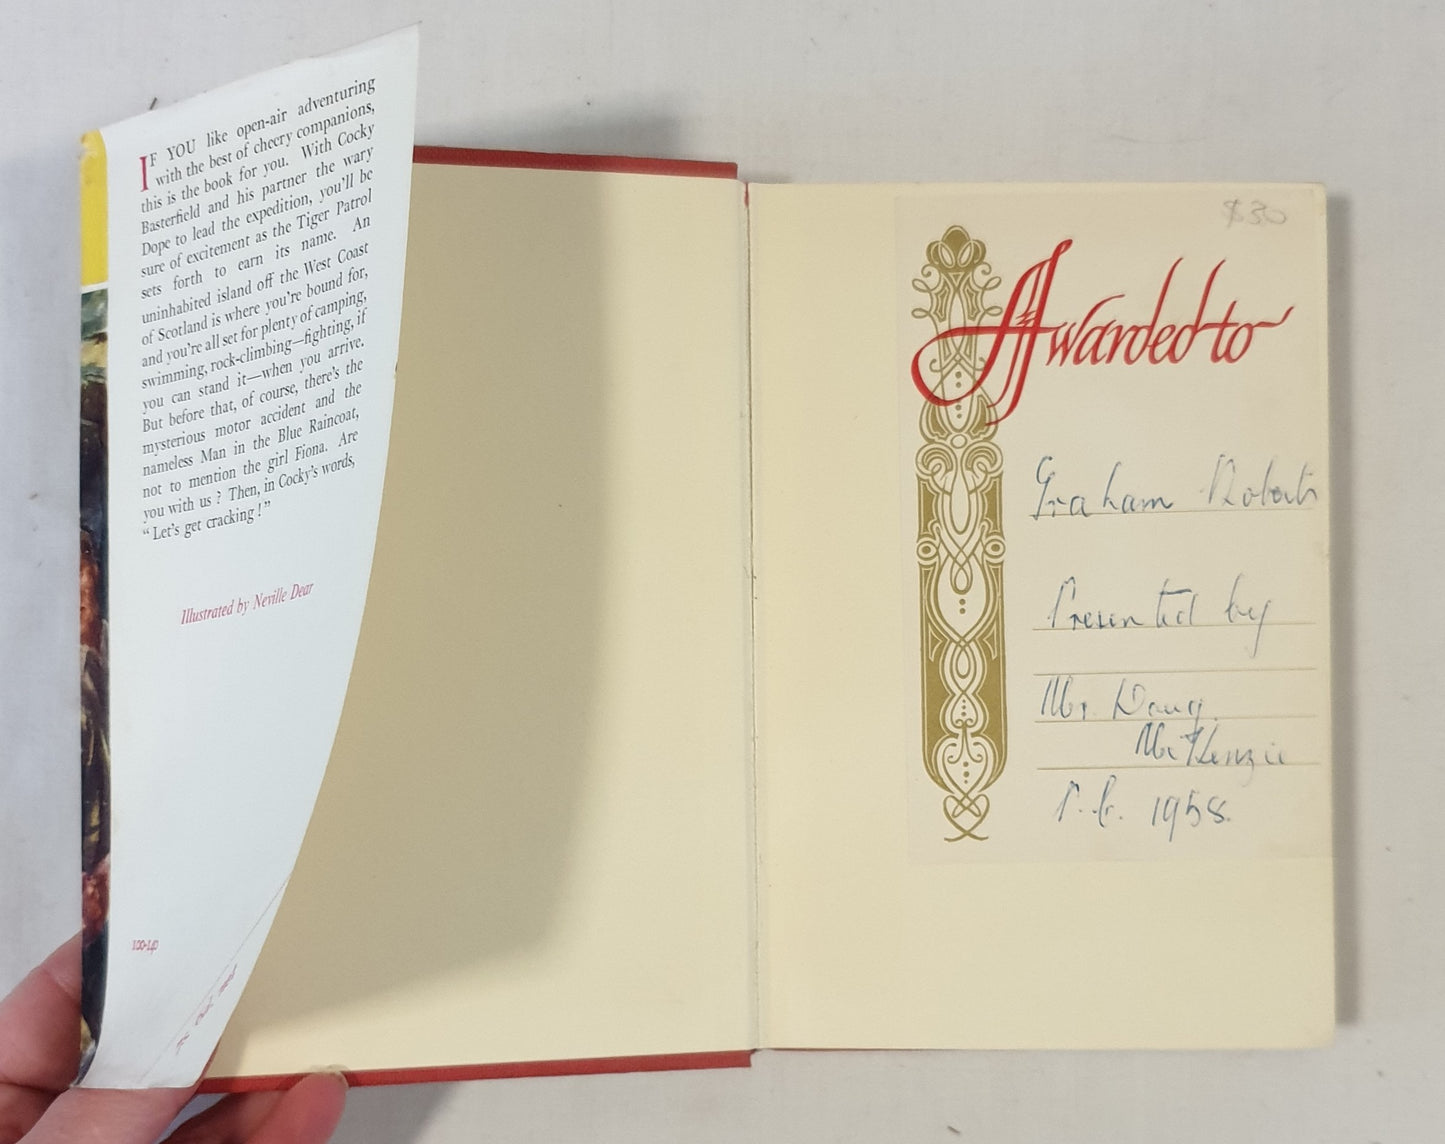 IF YOU like open-air adventuring
with the best of cheery companions,
this is the book for you. With Cocky
Basterfield and his partner the wary
Dope to lead the expedition, you'll be
sure of excitement as the Tiger Patrol
sets forth to earn its name. An
uninhabited island off the West Coast
of Scotland is where you're bound for,
and you're all set for plenty of camping,
swimming, rock-climbing—fighting, if
you can stand it—when you arrive.
But before that, of course, there's the
mysterious motor accident and the
nameless Man in the Blue Raincoat,
not to mention the girl Fiona. Are
you with us ? Then, in Cocky's words,
“ Let's get cracking ! ”
Illustrated by Neville Dear
100-140
$30
Awarded to
Graham Roberts
Presented by
Mr. Doug.
McKenzie
1958.